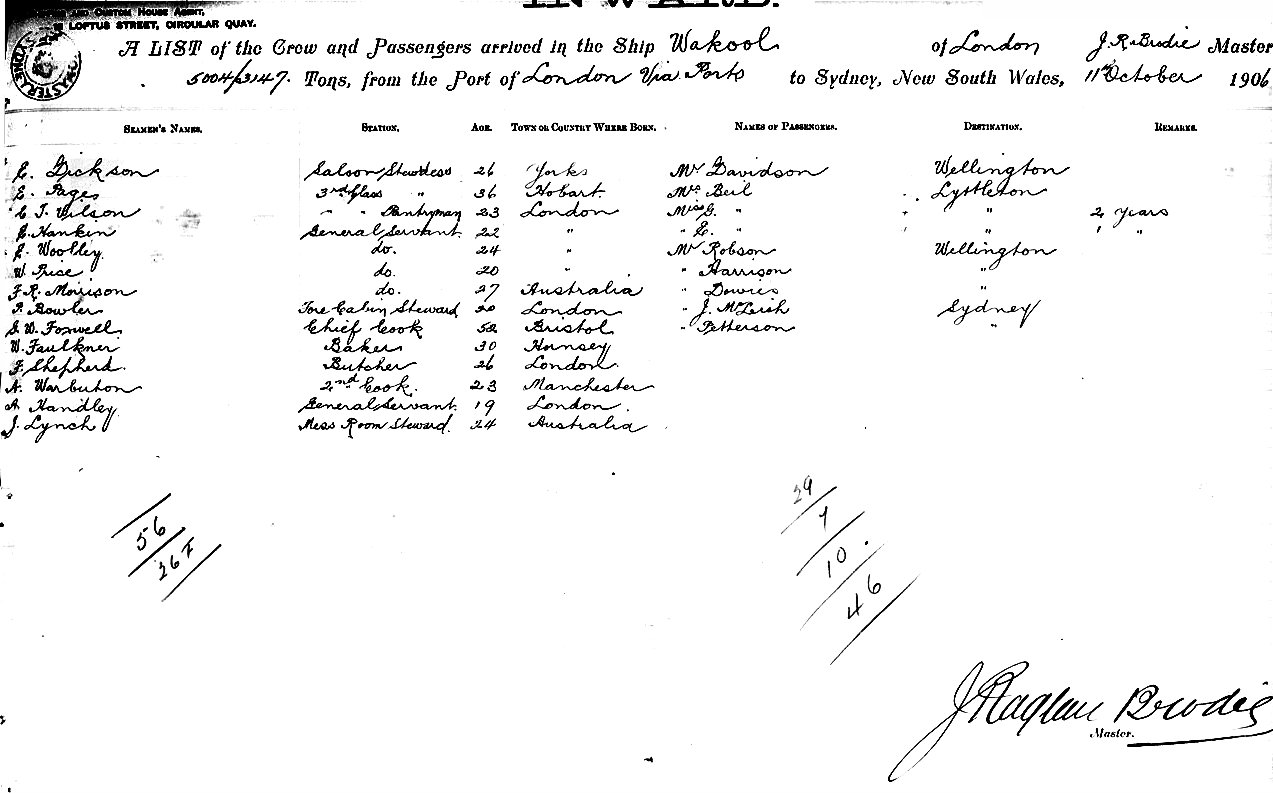 INWARD.
CUSTOM HOUSE AGENT,
LOFTUS STREET, CIRCULAR QUAY.
A LIST of the Crew and Passengers arrived in the Ship Wakool of London J. R. Brodie Master
5004/3147. Tons, from the Port of London Via Ports to Sydney, New South Wales, 11th October 1906
SEAMEN'S NAMES. STATION. AGE. TOWN OR COUNTRY WHERE BORN. NAMES OF PASSENGERS. DESTINATION. REMARKS.
E. Dickson Saloon Stewdess 26 Yorks Mr Davidson Wellington
E. Pages 3rd Class " 36 Hobart Mrs Beil Lyttleton
C J. Wilson " " Pantryman 23 London Miss G. " " 2 Years
E. Hankin General Servant 22 " " E. " " " "
E. Woolley do. 24 " Mr Robson Wellington
W. Price do. 20 " " Harrison "
F. R. Morrison do. 27 Australia " Downes "
P. Bowler Fore Cabin Steward 20 London " J. McLeish Sydney
J. W. Foxwell Chief Cook 52 Bristol " Petterson "
W. Faulkner Baker 30 Hornsey
F. Shepherd Butcher 26 London
A. Warbuton 2nd Cook. 23 Manchester
A. Handley General Servant 19 London.
J. Lynch Mess Room Steward. 24 Australia
56
267
29
7
10
46
J Raglan Brodie
Master.